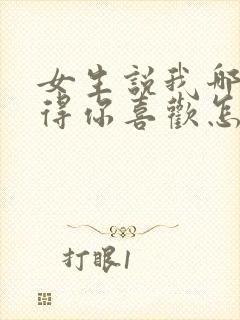 女生説我哪
得你喜歡怎
打眼1